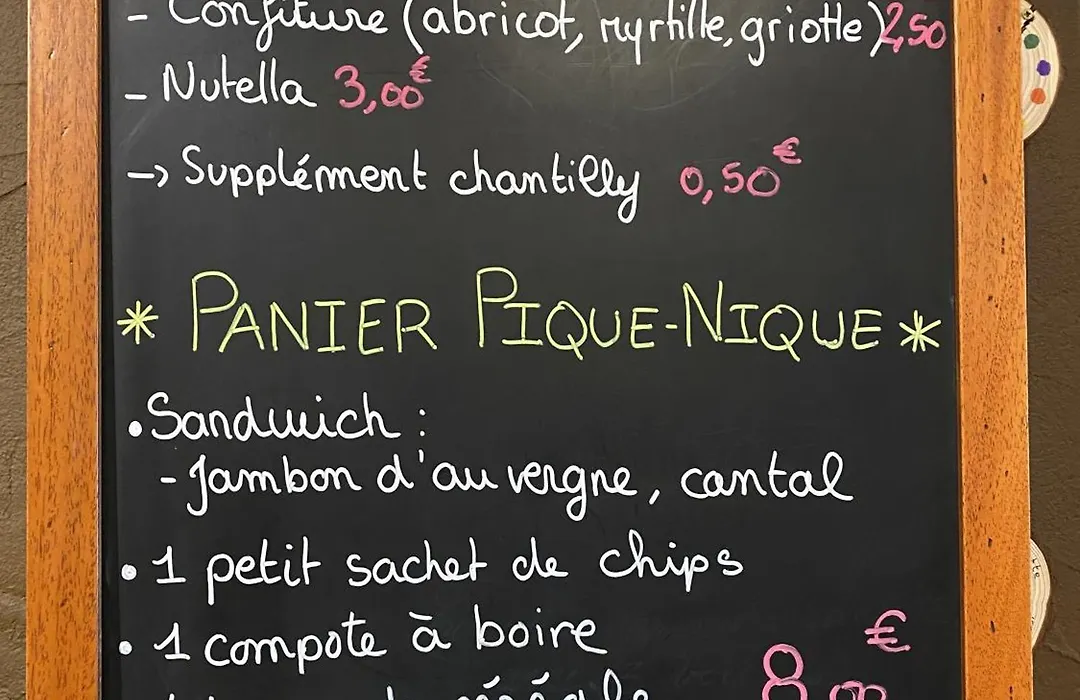 - Confiture (abricot, myrtille, griotte) 2,50
- Nutella 3,00€
→ Supplément chantilly 0,50€
* PANIER PIQUE-NIQUE *
• Sandwich :
- Jambon d'auvergne, cantal
• 1 petit sachet de chips
• 1 compote à boire
8,00€